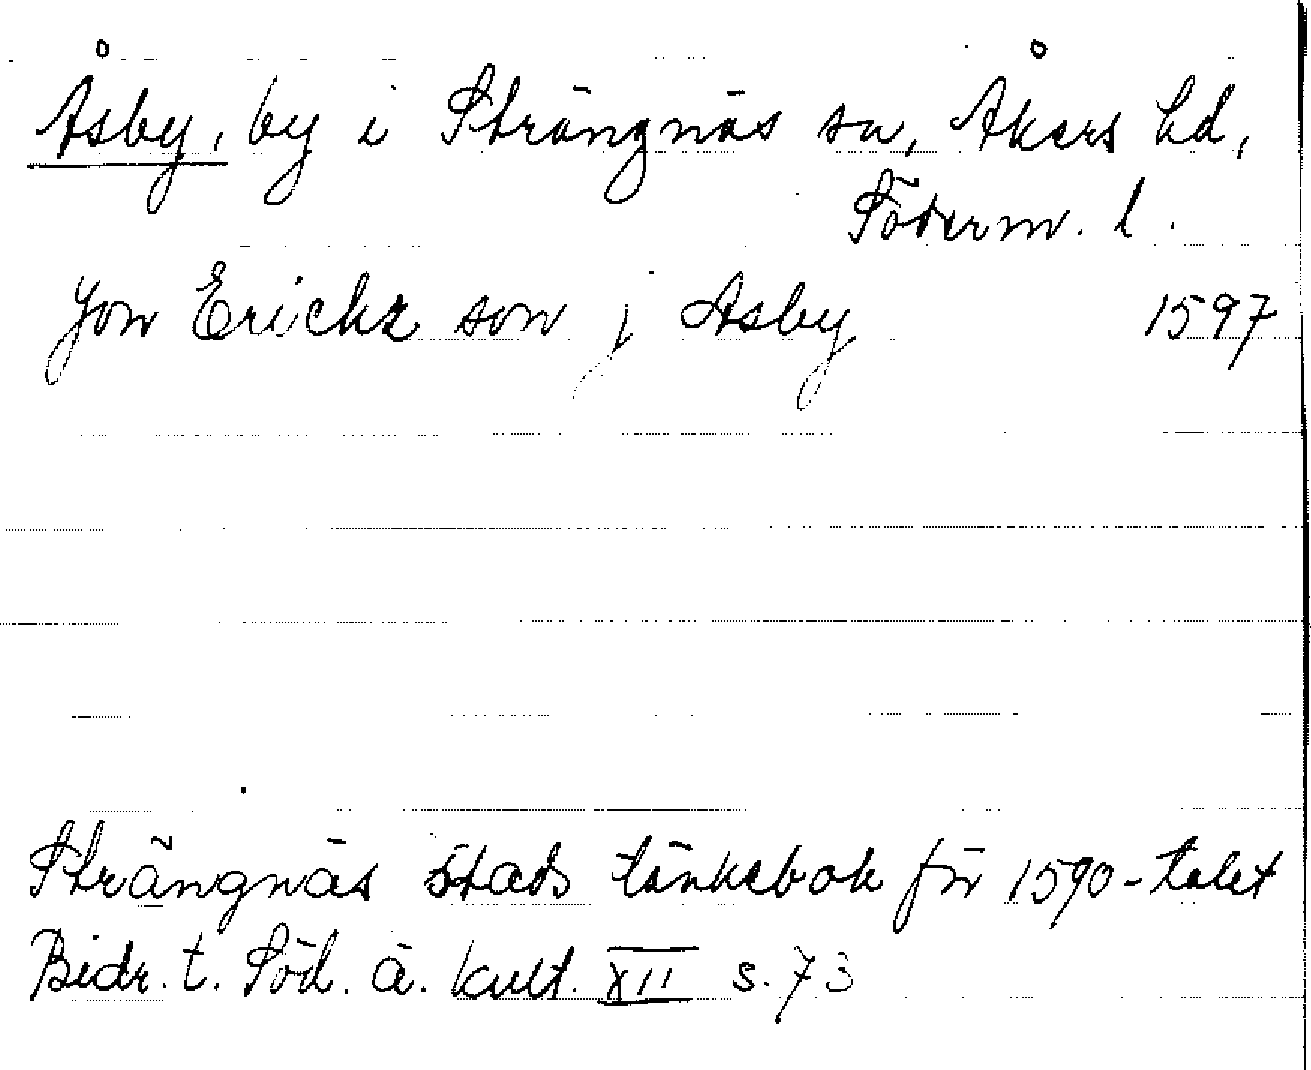 Åsby, by i Strängnäs sn, Åkers hd,
Söderm. l.
Jon Erickz son j Asby 1597
Strängnäs stads tänkebok för 1590-talet
Bidr. t. Söd. ä. kult. XII s. 73